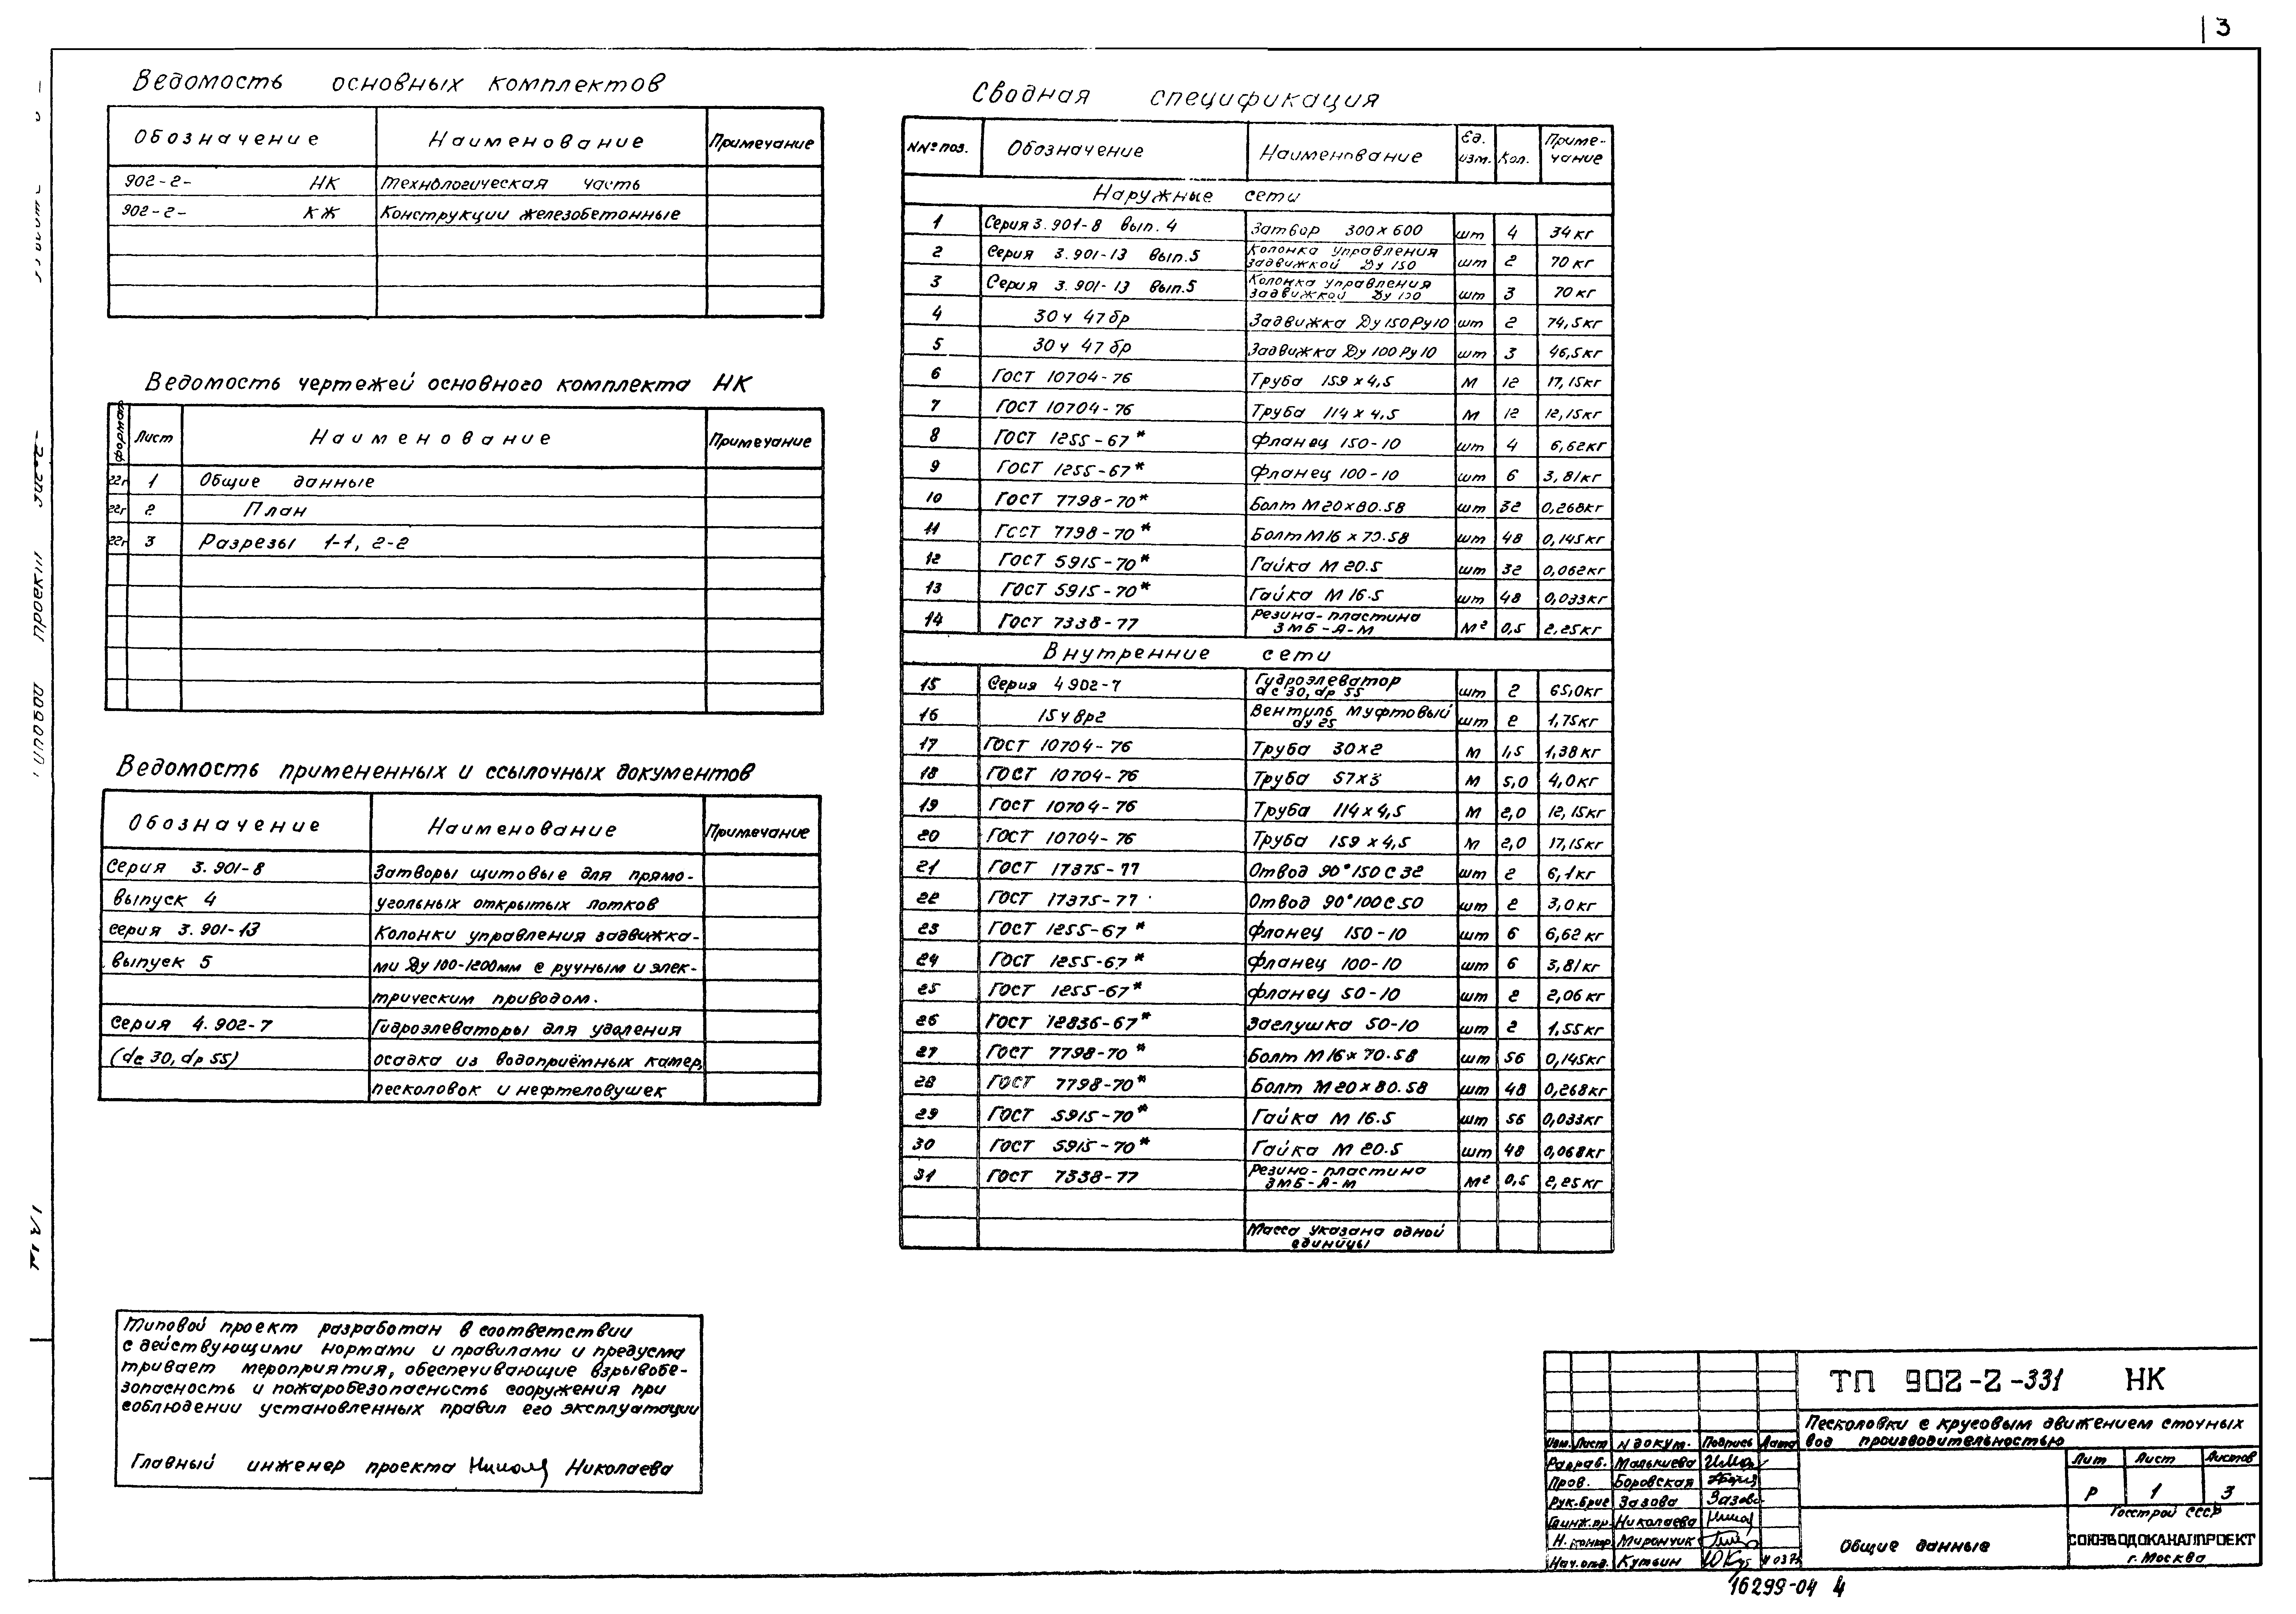 3
Ведомость основных комплектов
Обозначение Наименование Примечание
902-2- НК Технологическая часть
902-2- КЖ Конструкции железобетонные
Ведомость чертежей основного комплекта НК
формат Лист Наименование Примечание
22г 1 Общие данные
22г 2 План
22г 3 Разрезы 1-1, 2-2
Ведомость примененных и ссылочных документов
Обозначение Наименование Примечание
Серия 3.901-8 Затворы щитовые для прямо-
выпуск 4 угольных открытых лотков
серия 3.901-13 Колонки управления задвижка-
выпуск 5 ми Ду 100-1200мм с ручным и элек-
трическим приводом.
Серия 4.902-7 Гидроэлеваторы для удаления
(dс 30, dр 55) осадка из водоприёмных камер,
песколовок и нефтеловушек
Типовой проект разработан в соответствии
с действующими нормами и правилами и предусма
тривает мероприятия, обеспечивающие взрывобе-
зопасность и пожаробезопасность сооружения при
соблюдении установленных правил его эксплуатации
Главный инженер проекта Николаева
Сводная спецификация
NN° поз. Обозначение Наименование Ед. изм. Кол. Приме-чание
Наружные сети
1 Серия 3.901-8 вып. 4 Затвор 300х600 шт 4 34кг
2 Серия 3.901-13 вып.5 Колонка управления задвижкой Ду 150 шт 2 70кг
3 Серия 3.901-13 вып.5 Колонка управления задвижкой Ду 100 шт 3 70кг
4 30ч 47бр Задвижка Ду 150 Ру10 шт 2 74,5кг
5 30ч 47бр Задвижка Ду 100 Ру10 шт 3 46,5кг
6 ГОСТ 10704-76 Труба 159х4,5 М 12 17,15кг
7 ГОСТ 10704-76 Труба 114х4,5 М 12 12,15кг
8 ГОСТ 1255-67* Фланец 150-10 шт 4 6,62кг
9 ГОСТ 1255-67* Фланец 100-10 шт 6 3,81кг
10 ГОСТ 7798-70* Болт М20х80.58 шт 32 0,268кг
11 ГОСТ 7798-70* Болт М16х70.58 шт 48 0,145кг
12 ГОСТ 5915-70* Гайка М20.5 шт 32 0,062кг
13 ГОСТ 5915-70* Гайка М16.5 шт 48 0,033кг
14 ГОСТ 7338-77 Резина-пластина 3МБ-А-М М² 0,5 2,25кг
Внутренние сети
15 Серия 4902-7 Гидроэлеватор dс 30, dр 55 шт 2 65,0кг
16 15ч8р2 Вентиль муфтовый dу 25 шт 2 1,75кг
17 ГОСТ 10704-76 Труба 30х2 М 1,5 1,38кг
18 ГОСТ 10704-76 Труба 57х3 М 5,0 4,0кг
19 ГОСТ 10704-76 Труба 114х4,5 М 2,0 12,15кг
20 ГОСТ 10704-76 Труба 159х4,5 М 2,0 17,15кг
21 ГОСТ 17375-77 Отвод 90°150С32 шт 2 6,1кг
22 ГОСТ 17375-77 Отвод 90°100С50 шт 2 3,0кг
23 ГОСТ 1255-67* Фланец 150-10 шт 6 6,62кг
24 ГОСТ 1255-67* Фланец 100-10 шт 6 3,81кг
25 ГОСТ 1255-67* Фланец 50-10 шт 2 2,06кг
26 ГОСТ 12836-67* Заглушка 50-10 шт 2 1,55кг
27 ГОСТ 7798-70* Болт М16х70.58 шт 56 0,145кг
28 ГОСТ 7798-70* Болт М20х80.58 шт 48 0,268кг
29 ГОСТ 5915-70* Гайка М16.5 шт 56 0,033кг
30 ГОСТ 5915-70* Гайка М20.5 шт 48 0,068кг
31 ГОСТ 7338-77 Резина-пластина 3МБ-А-М М² 0,5 2,25кг
Масса указана одной
единицы
ТП 902-2-331 НК
Песколовки с круговым движением сточных
вод производительностью
Изм. Лист N докум. Подпись Дата
Разраб. Малышева
Пров. Боровская
Рук.бриг Зазова
Гл.инж.пр. Николаева
Н. контр Мирончик
Нач.отд. Кутьин
Лит Лист Листов
Р 1 3
Общие данные
Госстрой СССР
СОЮЗВОДОКАНАЛПРОЕКТ
г. Москва
16299-04 4